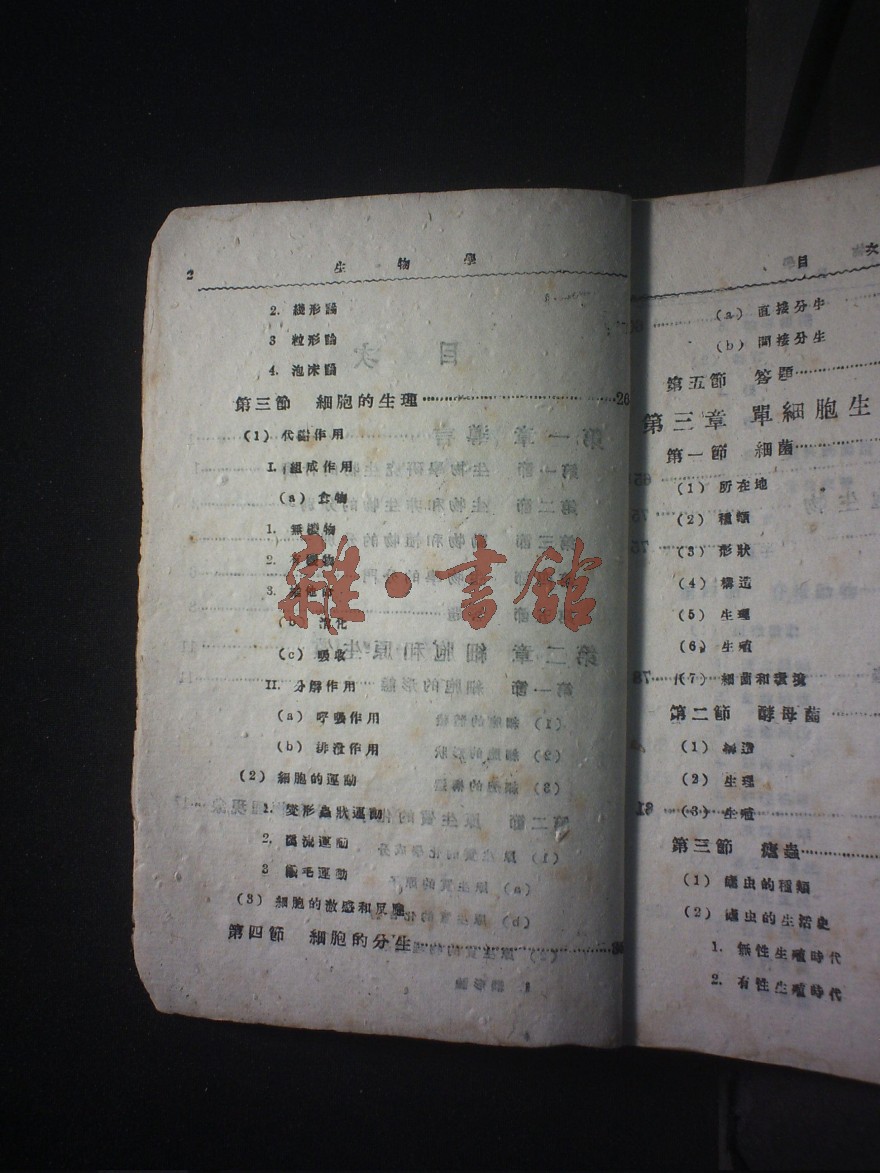 2 生物學
2. 綫形論
3 粒形論
4. 泡沫論
第三節 細胞的生理 26
(1) 代謝作用
I. 組成作用
(a) 食物
1. 無機物
2. 有機物
3.
(b) 消化
(c) 吸收
II. 分解作用
(a) 呼吸作用
(b) 排泄作用
(2) 細胞的運動
1. 變形蟲狀運動
2. 流運動
3 毛運動
(3) 細胞的激感和反應
第四節 細胞的分生
雜・書館
目次
(a) 直接分生
(b) 間接分生
第五節 答題
第三章 單細胞生
第一節 細菌
(1) 所在地
(2) 種類
(3) 形狀
(4) 構造
(5) 生理
(6) 生殖
(7) 細菌和環境
第二節 酵母菌
(1) 構造
(2) 生理
(3) 生殖
第三節 瘧蟲
(1) 瘧虫的種類
(2) 瘧虫的生活史
1. 無性生殖時代
2. 有性生殖時代